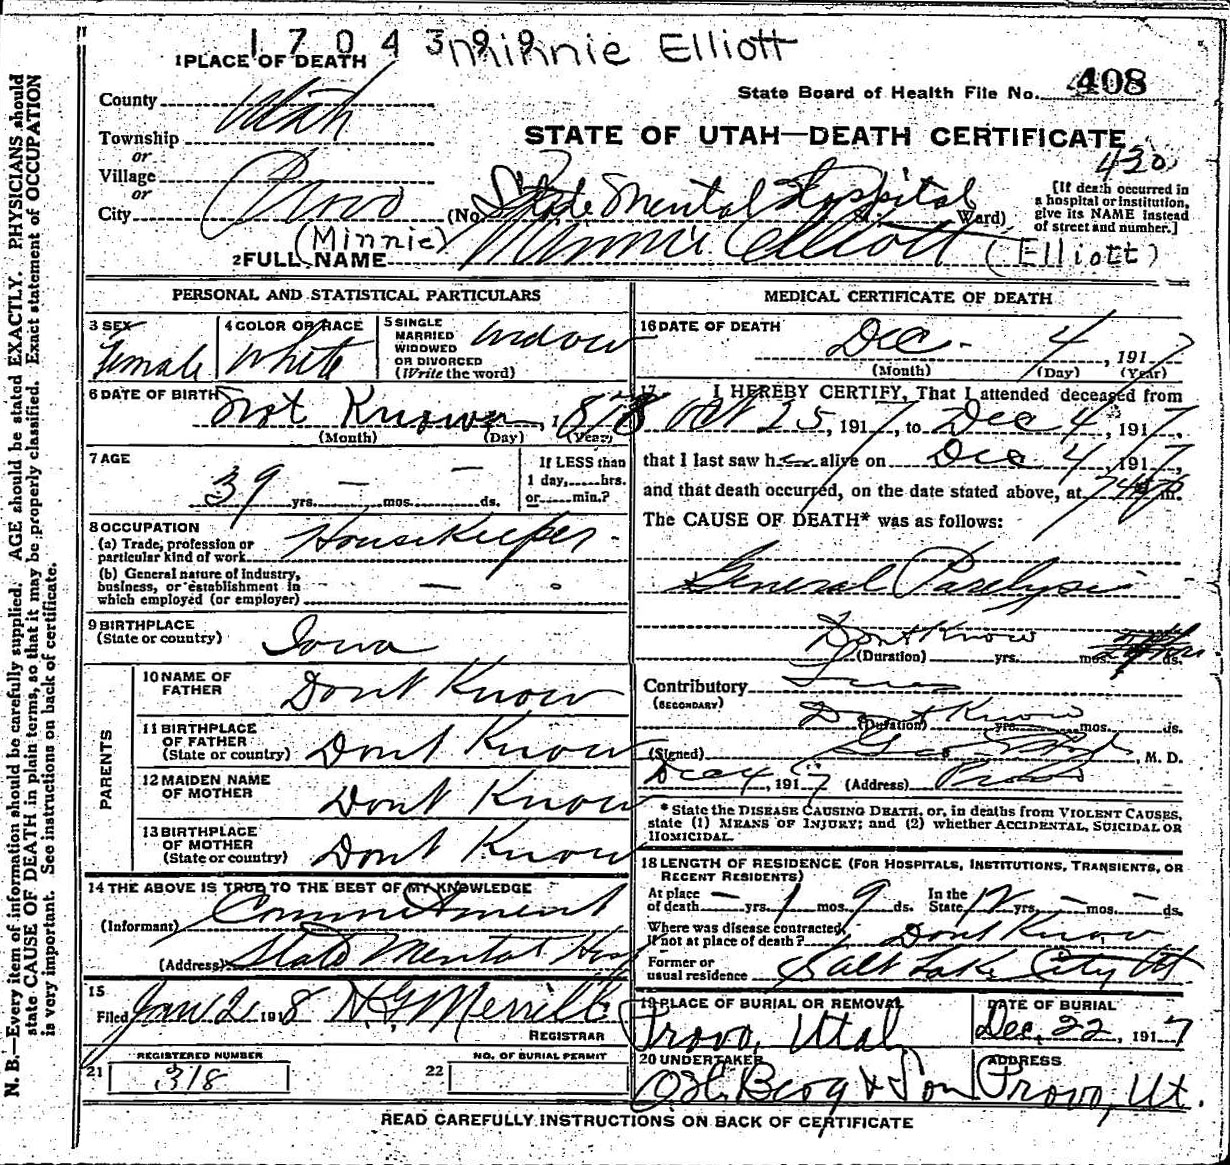 1704399 Minnie Elliott
1 PLACE OF DEATH
State Board of Health File No. 408
County Utah
STATE OF UTAH—DEATH CERTIFICATE
Township
or
430
Village
or
City Provo (No. State Mental Hospital St. Ward)
[If death occurred in
a hospital or institution,
give its NAME instead
of street and number.]
2 FULL NAME (Minnie) Minnie Elliott (Elliott)
PERSONAL AND STATISTICAL PARTICULARS
3 SEX Female
4 COLOR OR RACE White
5 SINGLE
MARRIED
WIDOWED
OR DIVORCED
(Write the word)
Widow
6 DATE OF BIRTH Not Known, 1878
(Month) (Day) (Year)
7 AGE
39 yrs. — mos. — ds.
If LESS than
1 day, hrs.
or min.?
8 OCCUPATION
(a) Trade, profession or
particular kind of work Housekeeper
(b) General nature of industry,
business, or establishment in
which employed (or employer) —
9 BIRTHPLACE
(State or country) Iowa
PARENTS
10 NAME OF
FATHER Dont Know
11 BIRTHPLACE
OF FATHER
(State or country) Dont Know
12 MAIDEN NAME
OF MOTHER Dont Know
13 BIRTHPLACE
OF MOTHER
(State or country) Dont Know
14 THE ABOVE IS TRUE TO THE BEST OF MY KNOWLEDGE
(Informant) Commitment
(Address) State Mental Hosp
15
Filed Jan 2 1918 N. G. Merrill
REGISTRAR
REGISTERED NUMBER
21 318
NO. OF BURIAL PERMIT
22
MEDICAL CERTIFICATE OF DEATH
16 DATE OF DEATH
Dec. 4, 1917
(Month) (Day) (Year)
17 I HEREBY CERTIFY, That I attended deceased from
Oct 25, 1917, to Dec 4, 1917,
that I last saw her alive on Dec 4, 1917,
and that death occurred, on the date stated above, at m.
The CAUSE OF DEATH* was as follows:
General Paralysis
Dont Know
(Duration) yrs. mos. ds.
Contributory
(SECONDARY)
Dont Know
(Duration) yrs. mos. ds.
(Signed) Geo , M. D.
Dec 4, 1917 (Address) Provo
* State the DISEASE CAUSING DEATH, or, in deaths from VIOLENT CAUSES,
state (1) MEANS OF INJURY; and (2) whether ACCIDENTAL, SUICIDAL OR
HOMICIDAL.
18 LENGTH OF RESIDENCE (FOR HOSPITALS, INSTITUTIONS, TRANSIENTS, OR
RECENT RESIDENTS)
At place
of death — yrs. 1 mos. 9 ds.
In the
State 12 yrs. — mos. — ds.
Where was disease contracted,
if not at place of death? Dont Know
Former or
usual residence Salt Lake City Ut
19 PLACE OF BURIAL OR REMOVAL
Provo, Utah
DATE OF BURIAL
Dec. 22, 1917
20 UNDERTAKER
O. H. Berg & Son
ADDRESS
Provo, Ut.
READ CAREFULLY INSTRUCTIONS ON BACK OF CERTIFICATE
N. B.—Every item of information should be carefully supplied. AGE should be stated EXACTLY. PHYSICIANS should
state CAUSE OF DEATH in plain terms, so that it may be properly classified. Exact statement of OCCUPATION
is very important. See instructions on back of certificate.